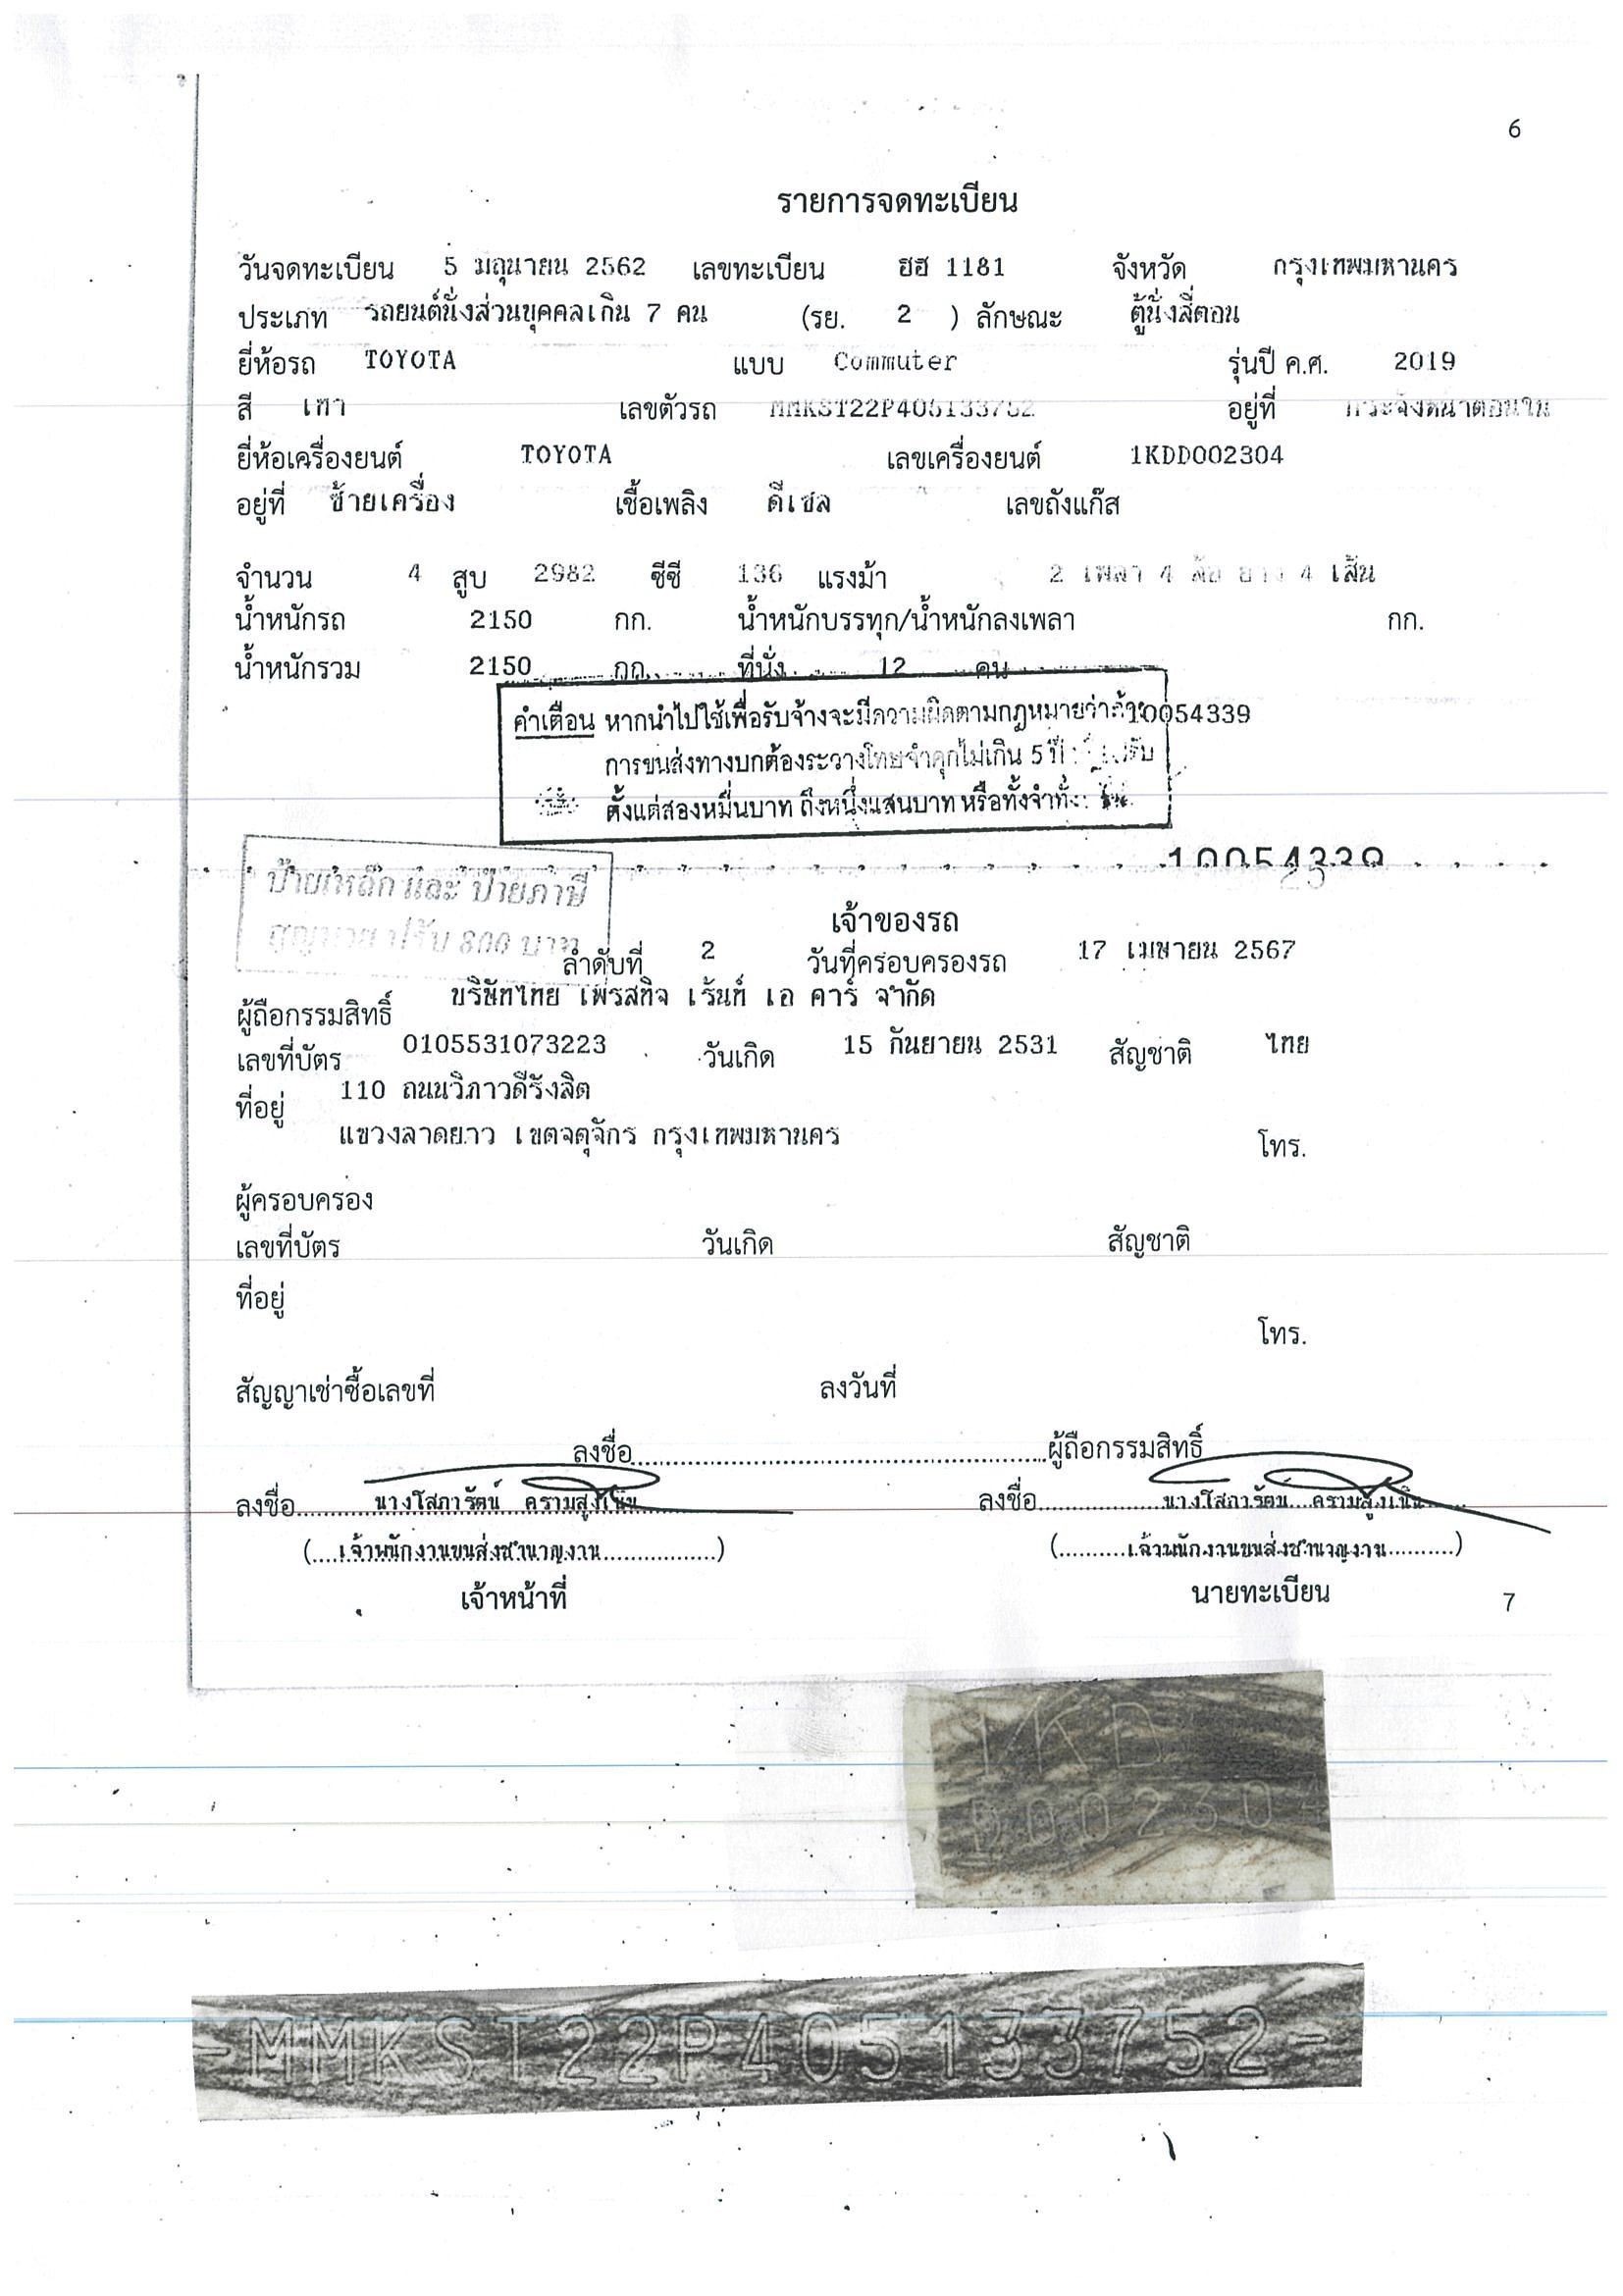 6
รายการจดทะเบียน
วันจดทะเบียน 5 มิถุนายน 2562 เลขทะเบียน ฮฮ 1181 จังหวัด กรุงเทพมหานคร
ประเภท รถยนต์นั่งส่วนบุคคลเกิน 7 คน (รย. 2 ) ลักษณะ ตู้นั่งสี่ตอน
ยี่ห้อรถ TOYOTA แบบ Commuter รุ่นปี ค.ศ. 2019
สี เทา เลขตัวรถ MMKST22P405133752 อยู่ที่ กระจังหน้าตอนใน
ยี่ห้อเครื่องยนต์ TOYOTA เลขเครื่องยนต์ 1KDD002304
อยู่ที่ ซ้ายเครื่อง เชื้อเพลิง ดีเซล เลขถังแก๊ส
จำนวน 4 สูบ 2982 ซีซี 136 แรงม้า 2 เพลา 4 ล้อ ยาง 4 เส้น
น้ำหนักรถ 2150 กก. น้ำหนักบรรทุก/น้ำหนักลงเพลา กก.
น้ำหนักรวม 2150 กก. ที่นั่ง 12 คน
คำเตือน หากนำไปใช้เพื่อรับจ้างจะมีความผิดตามกฎหมายว่าด้วย 10054339
การขนส่งทางบกต้องระวางโทษจำคุกไม่เกิน 5 ปี
ตั้งแต่สองหมื่นบาท ถึงหนึ่งแสนบาท หรือทั้งจำทั้ง
10054339
25
ป้ายเหล็ก และ ป้ายภาษี
สูญหาย ปรับ 800 บาท
เจ้าของรถ
ลำดับที่ 2 วันที่ครอบครองรถ 17 เมษายน 2567
ผู้ถือกรรมสิทธิ์ บริษัทไทย เพรสทิจ เร้นท์ เอ คาร์ จำกัด
เลขที่บัตร 0105531073223 วันเกิด 15 กันยายน 2531 สัญชาติ ไทย
ที่อยู่ 110 ถนนวิภาวดีรังสิต
แขวงลาดยาว เขตจตุจักร กรุงเทพมหานคร โทร.
ผู้ครอบครอง
เลขที่บัตร วันเกิด สัญชาติ
ที่อยู่
โทร.
สัญญาเช่าซื้อเลขที่ ลงวันที่
ลงชื่อ ผู้ถือกรรมสิทธิ์
ลงชื่อ นางโสภารัตน์ ครามสูงเนิน ลงชื่อ นางโสภารัตน์ ครามสูงเนิน
(เจ้าพนักงานขนส่งชำนาญงาน) (เจ้าพนักงานขนส่งชำนาญงาน)
เจ้าหน้าที่ นายทะเบียน
7
1KD
D002304
-MMKST22P405133752-